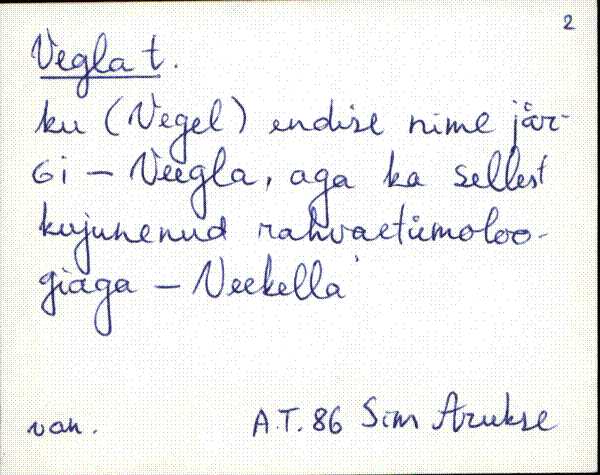 2
Vegla t.
ku (Vegel) endise nime jär-
gi – Veegla, aga ka sellest
kujunenud rahvaetümoloo-
giaga – Veekella
van. A.T. 86 Sim Arukse